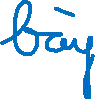 bày